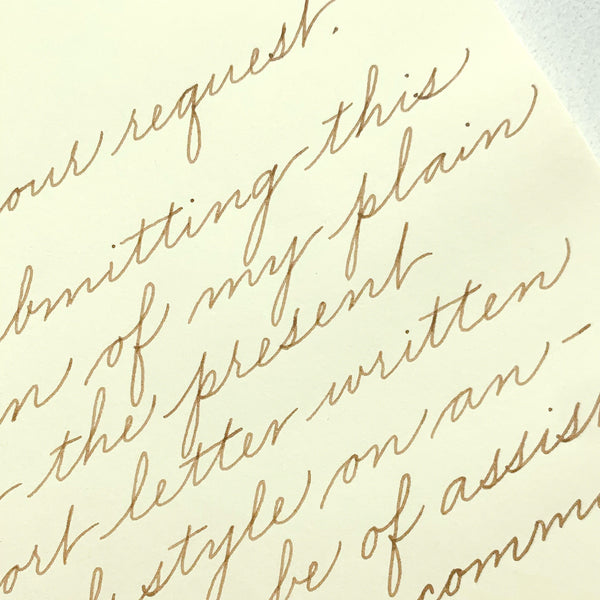 our request.
bmitting this
n of my plain
the present
ort letter written
style on an-
be of assis
commu